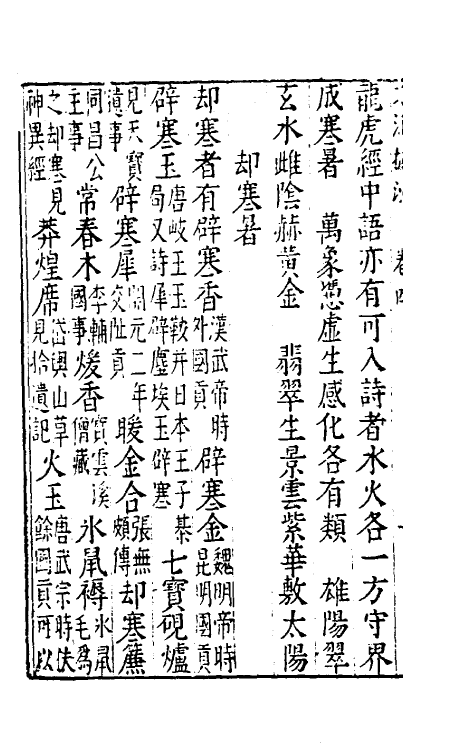 龍虎經中語亦有可入詩者水火各一方守界
成寒暑　萬象憑虛生感化各有類　雄陽翠
玄水雌陰赫黃金　翡翠生景雲紫華敷太陽
却寒暑
却寒者有辟寒香漢武帝時外國貢辟寒金魏明帝時昆明國貢
辟寒玉唐岐王玉鞍并日本王子棊局又詩犀辟塵埃玉辟寒七寶硯爐
見天寶遺事辟寒犀開元二年交趾貢暖金合張無頗傳却寒簾
同昌公主事常春木李輔國事煖香寶雲溪僧藏氷鼠褥氷鼠毛為
之却寒見神異經莽煌席岱輿山草見拾遺記火玉唐武宗時伕餘國貢可以